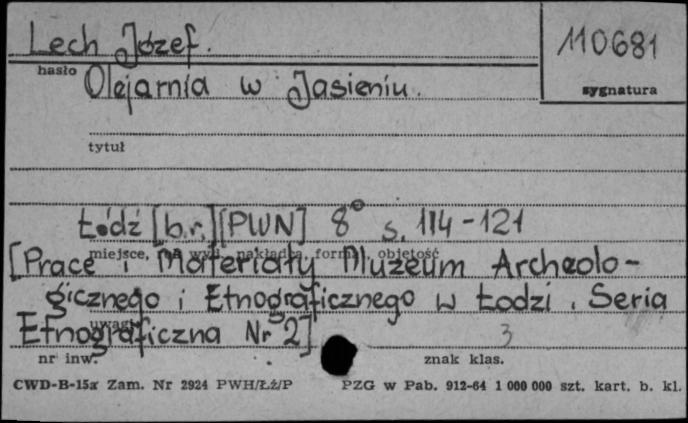 Lech Józef.
110681
hasło
Olejarnia w Jasieniu.
sygnatura
tytuł
Łódź [b.r.] [PWN] 8° s. 114-121
miejsce, rok wyd., nakładca, format, objętość
[Prace i Materiały Muzeum Archeolo-
gicznego i Etnograficznego w Łodzi. Seria
uwagi
Etnograficzna Nr 2]
3
nr inw.
znak klas.
CWD-B-15a Zam. Nr 2924 PWH/Łż/P
PZG w Pab. 912-64 1 000 000 szt. kart. b. kl.